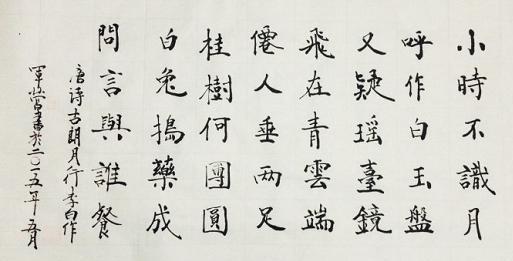 小時不識月
呼作白玉盤
又疑瑶臺鏡
飛在青雲端
僊人垂两足
桂樹何團圓
白兔搗藥成
問言與誰餐
唐詩古朗月行李白作
書於二〇一五年